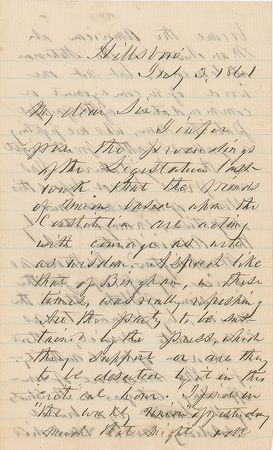 Hillsboro'
July 3, 1861
My dear Sir
I infer
from the proceedings
of the Legislature last
week, that the friends
of Union based upon the
Constitution are acting
with courage as well
as wisdom. A speech like
that of Bingham, in these
times, was really refreshing
Are the party to be sus
tained by the press, which
they support or are they
to be deserted by it in this
critical hour. I find in
"the weekly Union" of yesterday
much that might well